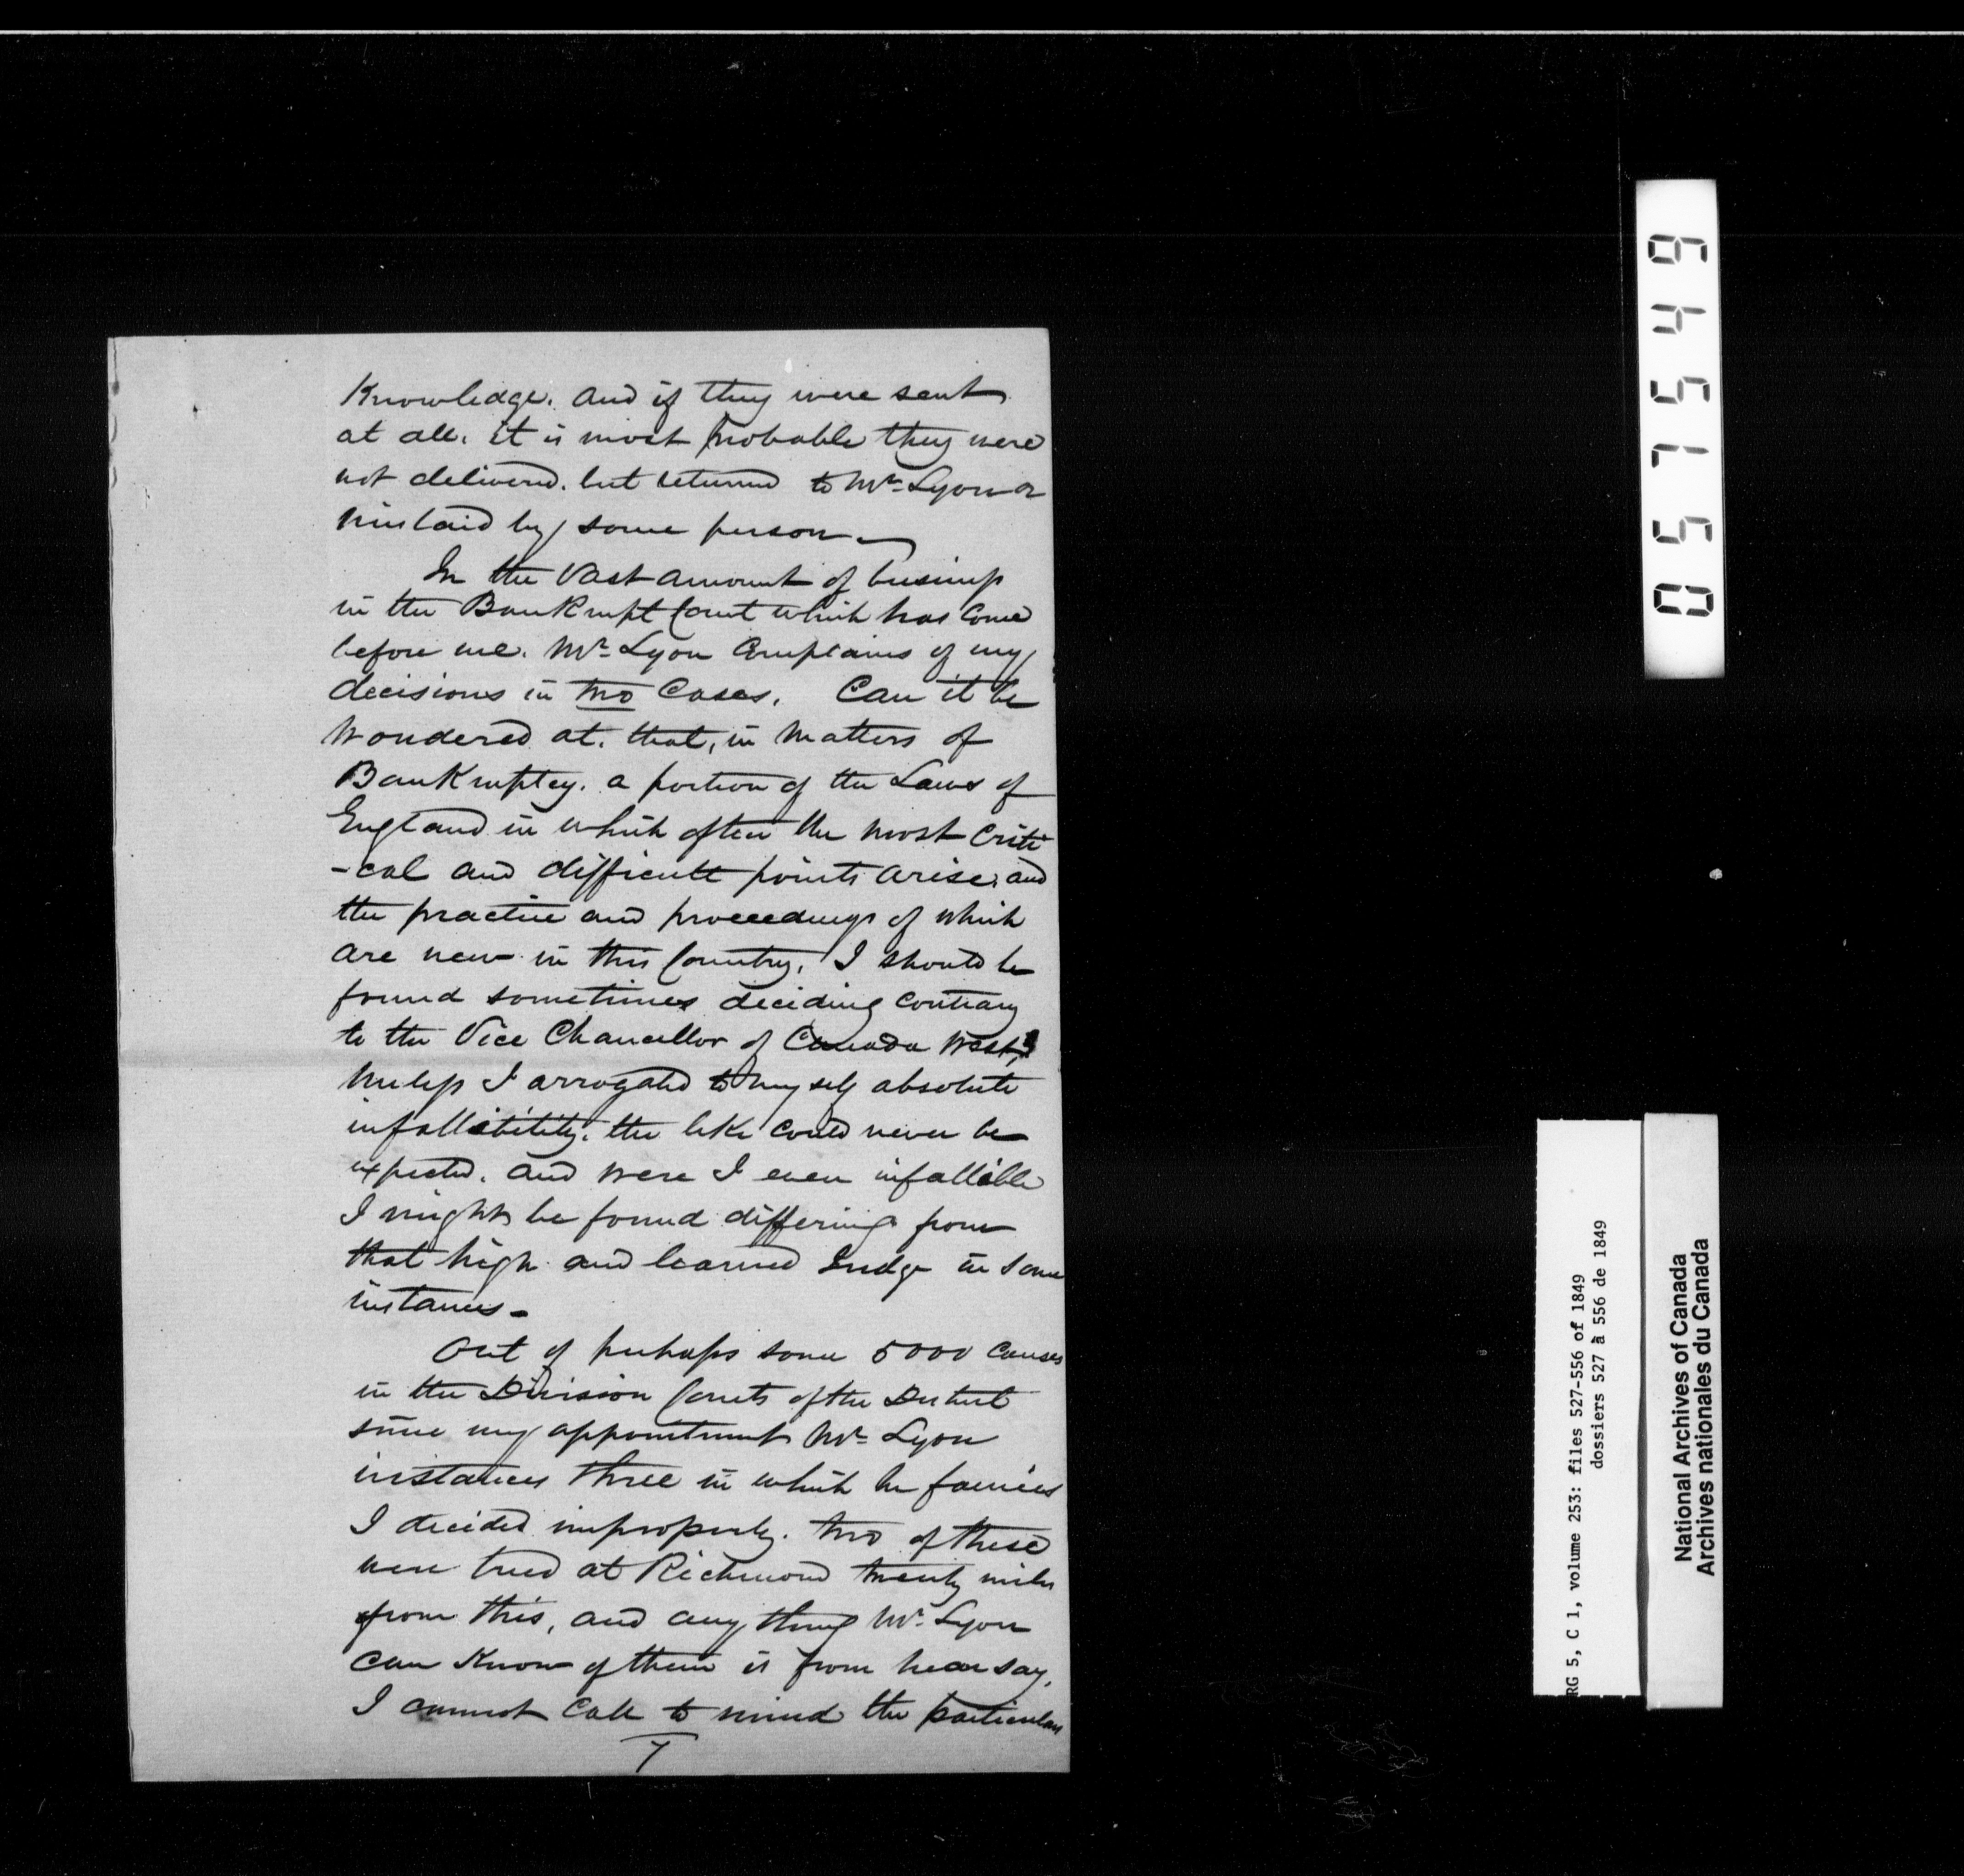 Knowledge. and if they were sent
at all. it is most probable they were
not delivered. but returned to Mr. Lyon or
mislaid by some person—
In the vast amount of business
in the Bankrupt Court which has come
before me. Mr. Lyon Complains of my
decisions in two Cases. Can it be
wondered at. that, in matters of
Bankruptcy. a portion of the Laws of
England in which often the most Criti
-cal and difficult points arise, and
the practice and proceedings of which
are new in this Country, I should be
found sometimes deciding Contrary
to the Vice Chancellor of Canada West,?
Unless I arrogated to myself absolute
infallibility. the like could never be
expected. and were I even infallible
I might be found differing from
that high and learned Judge in some
instances—
Out of perhaps some 5000 Causes
in the Division Courts of the District
since my appointment Mr. Lyon
instances three in which he fancies
I decided improperly. two of these
were tried at Richmond twenty miles
from this, and any thing Mr. Lyon
can Know of them is from hear say.
I cannot Call to mind the particulars
7
051549
RG 5, C 1, volume 253: files 527-556 of 1849
dossiers 527 à 556 de 1849
National Archives of Canada
Archives nationales du Canada